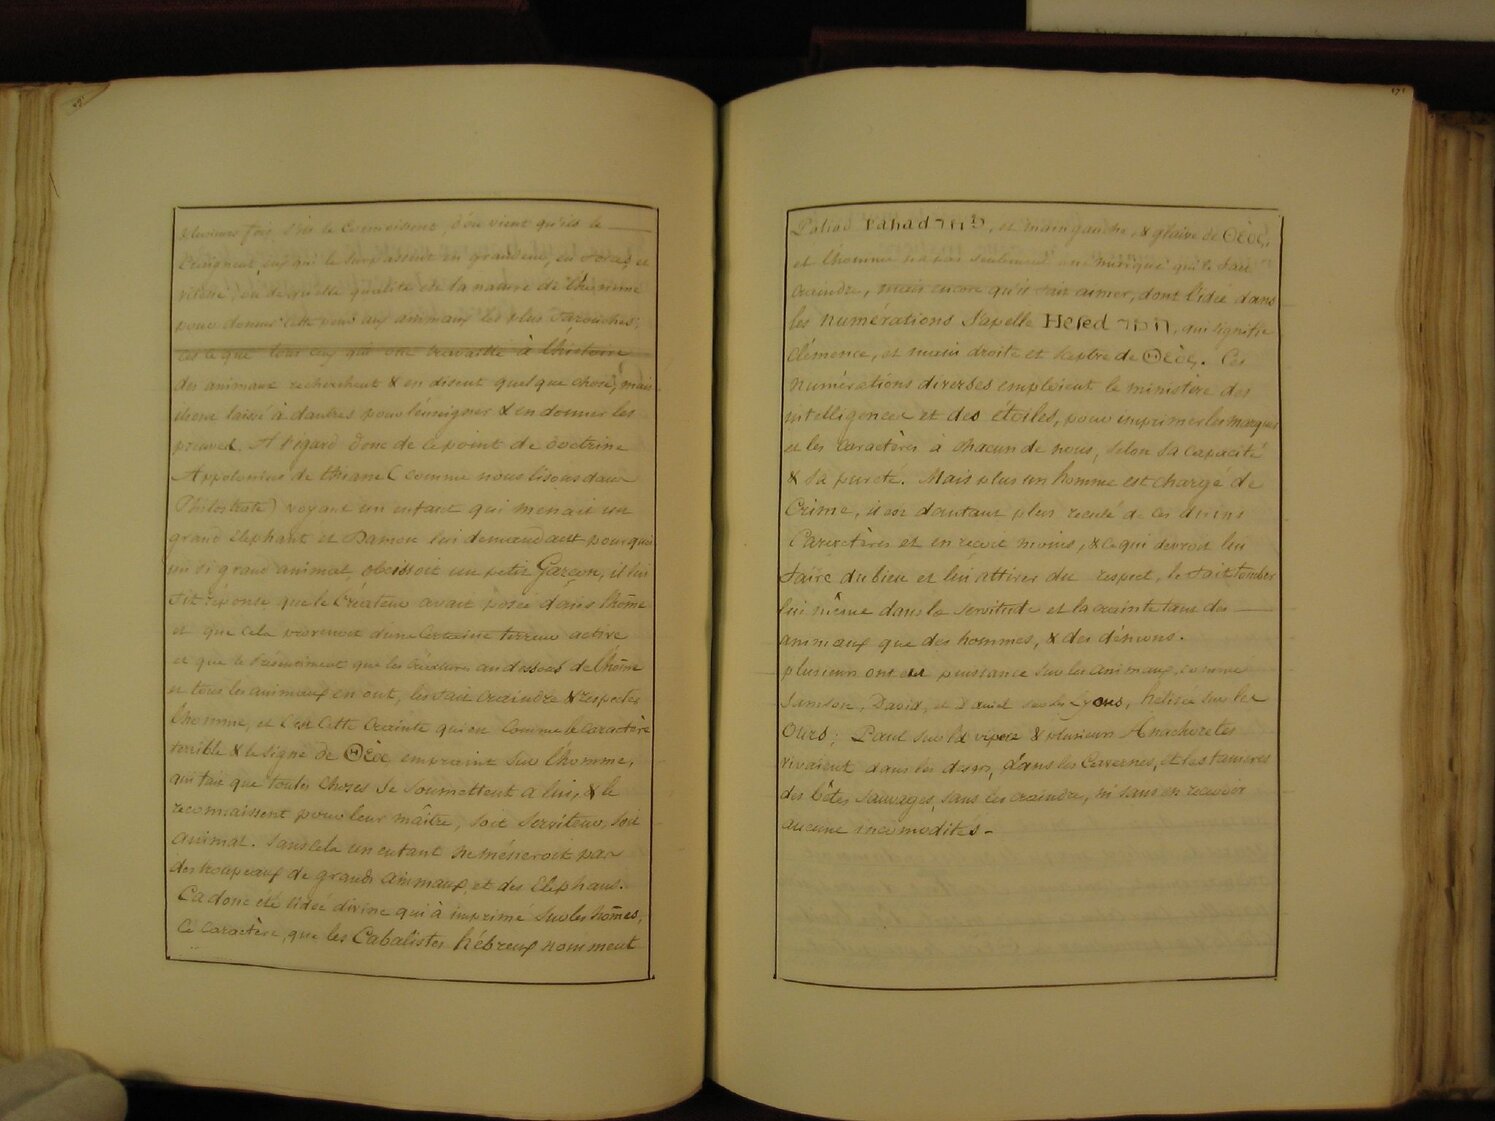 plusieurs fois s'ils le connoissent, d'ou vient qu'ils le
Craignent, eux qui le surpassent en grandeur, en forces, et
vitesse; ou de quelle qualité est la nature de l'homme
pour donner cette peur aux animaux les plus farouches;
ces ce que tous ceux qui ont travaillé à l'histoire
des animaux recherchent & en disent quelque chose, mais
laissé à dautres pour l'enseigner & en donner les
preuves. A l'egard donc de ce point de doctrine
Appolonius de thiane (comme nous lisons dans
Philostrate) voyant un enfant qui menait un
grand Elephant et Damon lui demandant pourquoi
un si grand animal obeissoit un petit Garçon, il lui
fit réponse que le Créateur avait posée dans l'hom̄e
et que cela provenoit dune Certaine terreur active
et que le que les Créatures au dessous de l'hom̄e
et tous les animaux en ont, les fait craindre & respecter
l'homme, et C'est Cette Crainte qui est Comme le Caractère
terrible & le signe de Θεὸς empraint sur l'homme,
qui fait que toutes choses se soumettent a lui, & le
reconnaissent pour leur maître, soit Serviteur, soit
animal. sans cela un enfant ne méneroit pas
des troupeaux de grands animaux et des Elephans.
Ca donc été l'idée divine qui à imprimé sur les hom̄es,
Ce Caractère, que les Cabalistes hébreux nomment
Pahad Pahad פחד, et main gauche, & glaive de Θεὸς,
et l'homme n'a pas seulement une marque qui le fait
craindre, mais encore qu'il fait aimer, dont l'idée dans
les numérations s'apelle Hesed חסד, qui signifie
Clémence, et main droite et sceptre de Θεὸς. Ces
Numérations diverses emploient le ministère des
intelligences et des étoiles, pour imprimer les marques
et les Caractères à chacun de nous, selon sa capacité
& sa pureté. Mais plus un homme est chargé de
Crime, il est dautant plus reculé de ces divins
Caractères et en recoit moins, & ce qui devroit lui
faire du bien et lui attirer du respect, le fait tomber
lui même dans la servitude et la crainte tant des
animaux que des hommes, & des démons.
plusieurs ont eut puissance sur les animaux, comme
Samson, David, et Daniel sur les Lyons, hélisée sur les
Ours; Paul sur la vipere & plusieurs Anachoretes
vivaient dans les deserts, dans les Cavernes, et les tanieres
des bêtes sauvages, sans les craindre, ni sans en recevoir
aucune incomodités -